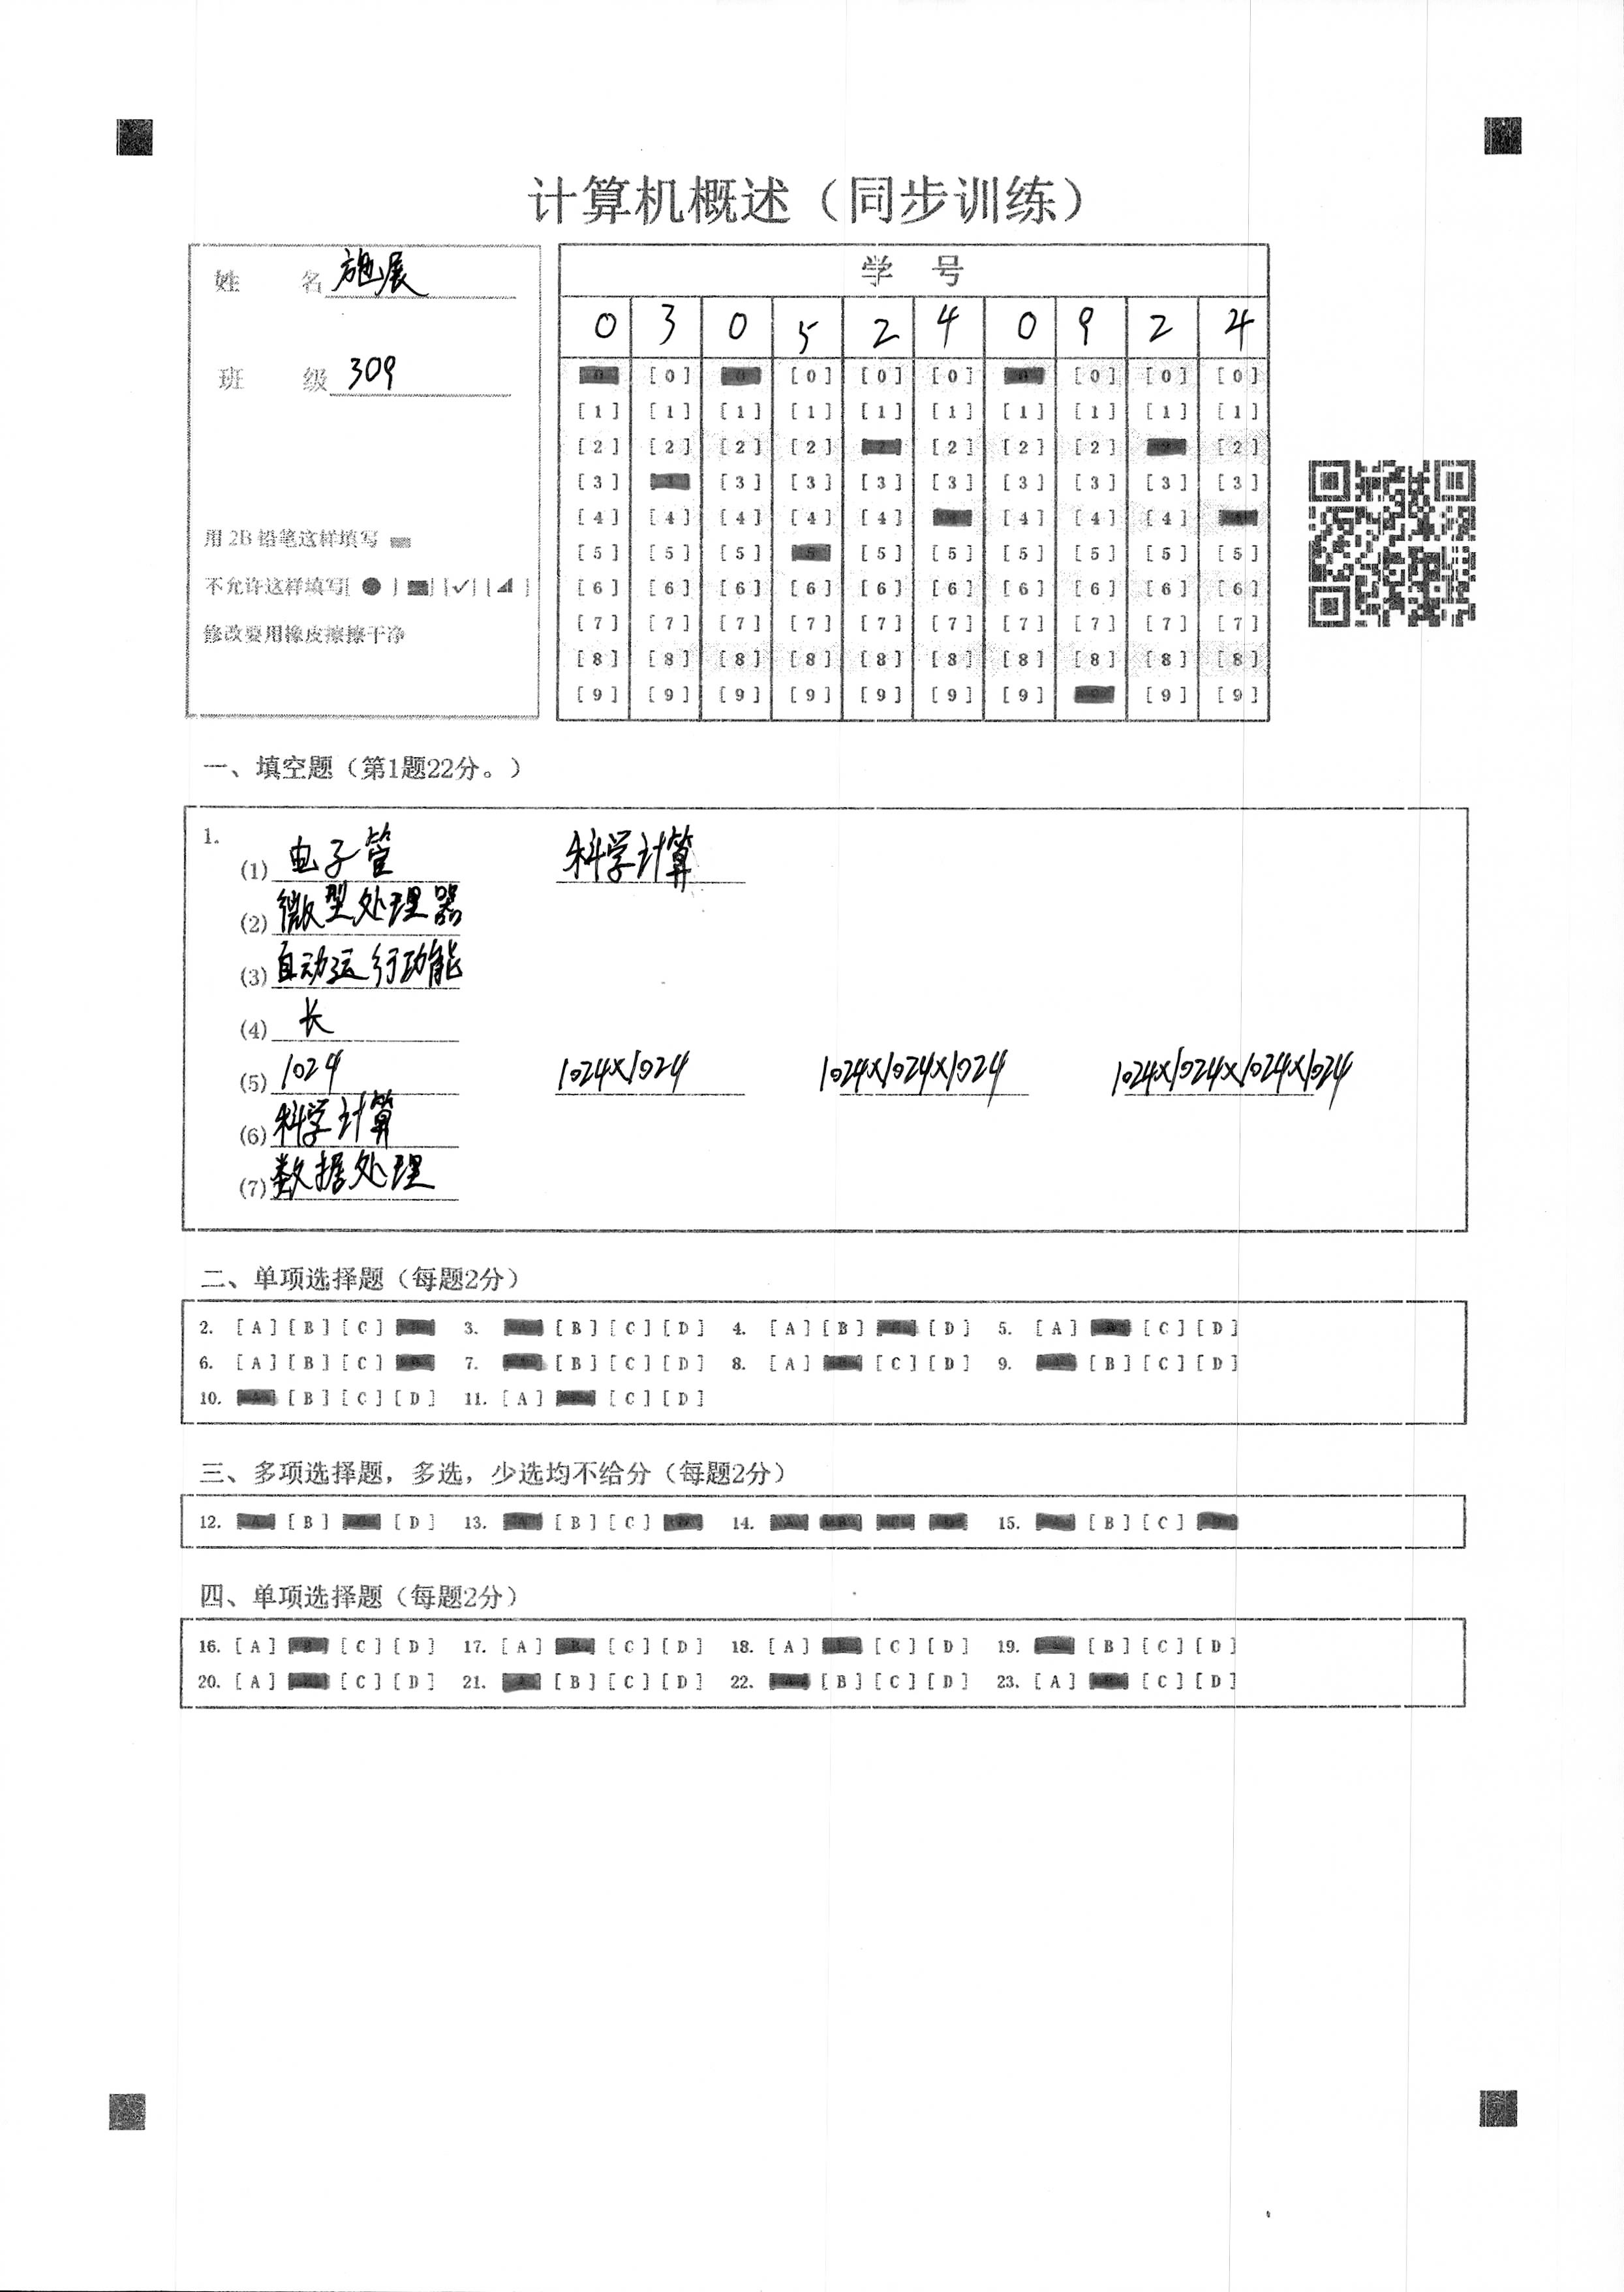 计算机概述（同步训练）
姓 名 施展
班 级 309
用 2B 铅笔这样填写
不允许这样填写[ ● ] [■] [✓] [◢ ]
修改要用橡皮擦擦干净
学 号
0 3 0 5 2 4 0 9 2 4
[0] [0] [0] [0] [0] [0] [0] [0] [0] [0]
[1] [1] [1] [1] [1] [1] [1] [1] [1] [1]
[2] [2] [2] [2] [2] [2] [2] [2] [2] [2]
[3] [3] [3] [3] [3] [3] [3] [3] [3] [3]
[4] [4] [4] [4] [4] [4] [4] [4] [4] [4]
[5] [5] [5] [5] [5] [5] [5] [5] [5] [5]
[6] [6] [6] [6] [6] [6] [6] [6] [6] [6]
[7] [7] [7] [7] [7] [7] [7] [7] [7] [7]
[8] [8] [8] [8] [8] [8] [8] [8] [8] [8]
[9] [9] [9] [9] [9] [9] [9] [9] [9] [9]
一、填空题（第1题22分。）
1.
(1) 电子管 科学计算
(2) 微型处理器
(3) 自动运行功能
(4) 长
(5) 1024 1024×1024 1024×1024×1024 1024×1024×1024×1024
(6) 科学计算
(7) 数据处理
二、单项选择题（每题2分）
2. [A] [B] [C] [D] 3. [A] [B] [C] [D] 4. [A] [B] [C] [D] 5. [A] [B] [C] [D]
6. [A] [B] [C] [D] 7. [A] [B] [C] [D] 8. [A] [B] [C] [D] 9. [A] [B] [C] [D]
10. [A] [B] [C] [D] 11. [A] [B] [C] [D]
三、多项选择题，多选，少选均不给分（每题2分）
12. [A] [B] [C] [D] 13. [A] [B] [C] [D] 14. [A] [B] [C] [D] 15. [A] [B] [C] [D]
四、单项选择题（每题2分）
16. [A] [B] [C] [D] 17. [A] [B] [C] [D] 18. [A] [B] [C] [D] 19. [A] [B] [C] [D]
20. [A] [B] [C] [D] 21. [A] [B] [C] [D] 22. [A] [B] [C] [D] 23. [A] [B] [C] [D]